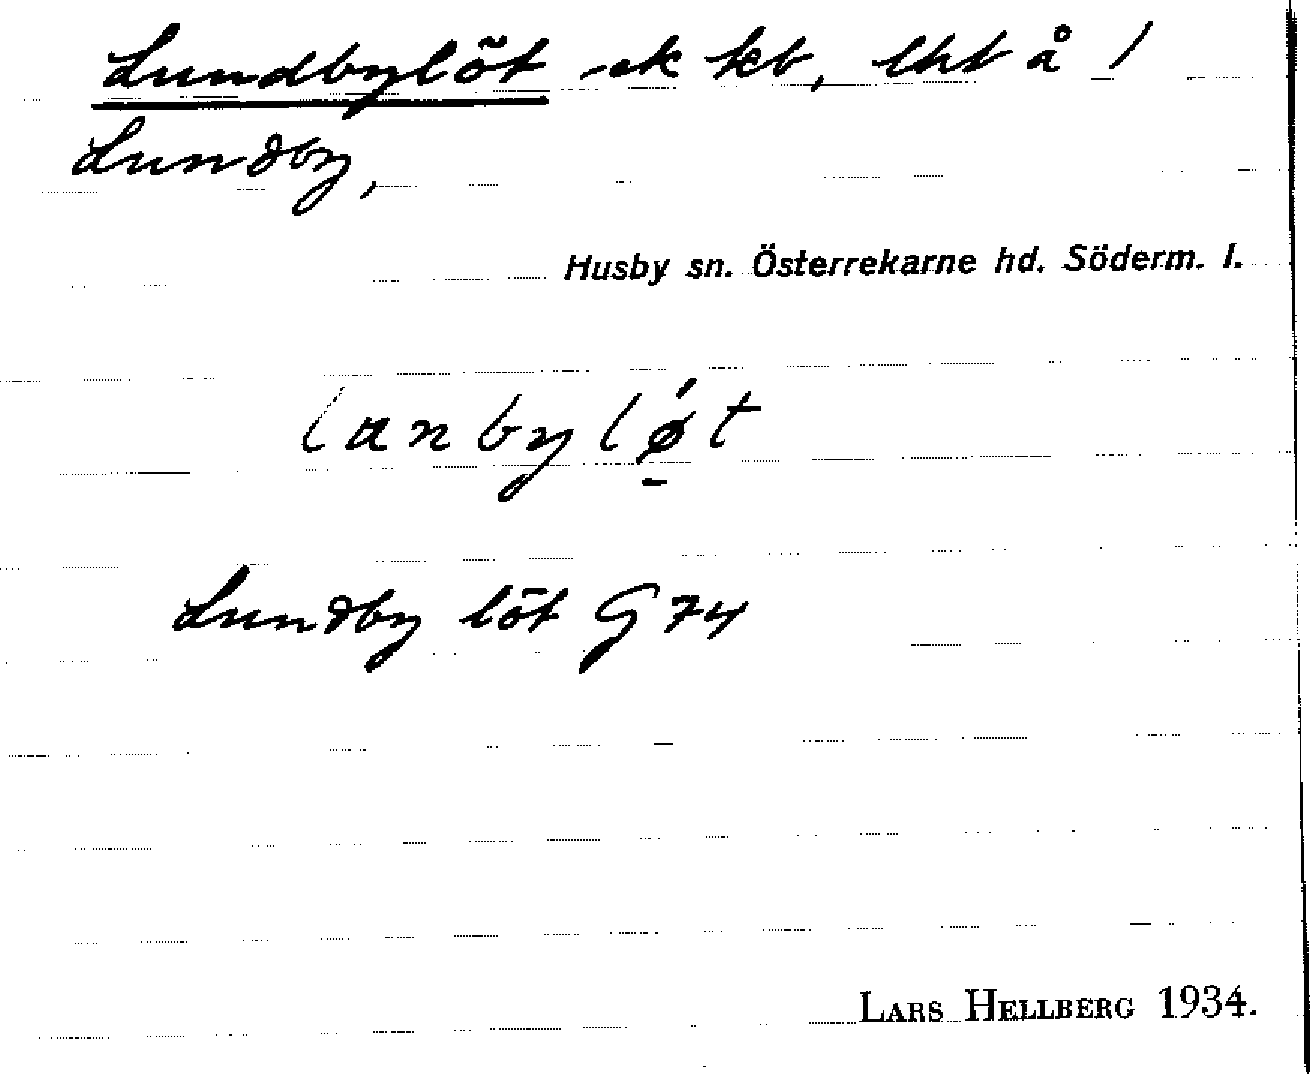 Lundbylöt
Lundby,
Husby sn. Österrekarne hd. Söderm. l.
lanbyløt
Lundby löt G 74
LARS HELLBERG 1934.